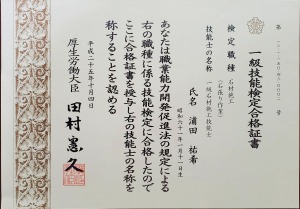 一級技能検定合格証書
検定職種 石材施工
(石張り作業)
技能士の名称 一級石材施工技能士
氏名 浦田 祐希
昭和六十一年一月十一日生
あなたは職業能力開発促進法の規定による
右の職種に係る技能検定に合格したので
ここに合格証書を授与し右の技能士の名称を
称することを認める
平成二十五年十月四日
厚生労働大臣 田村憲久